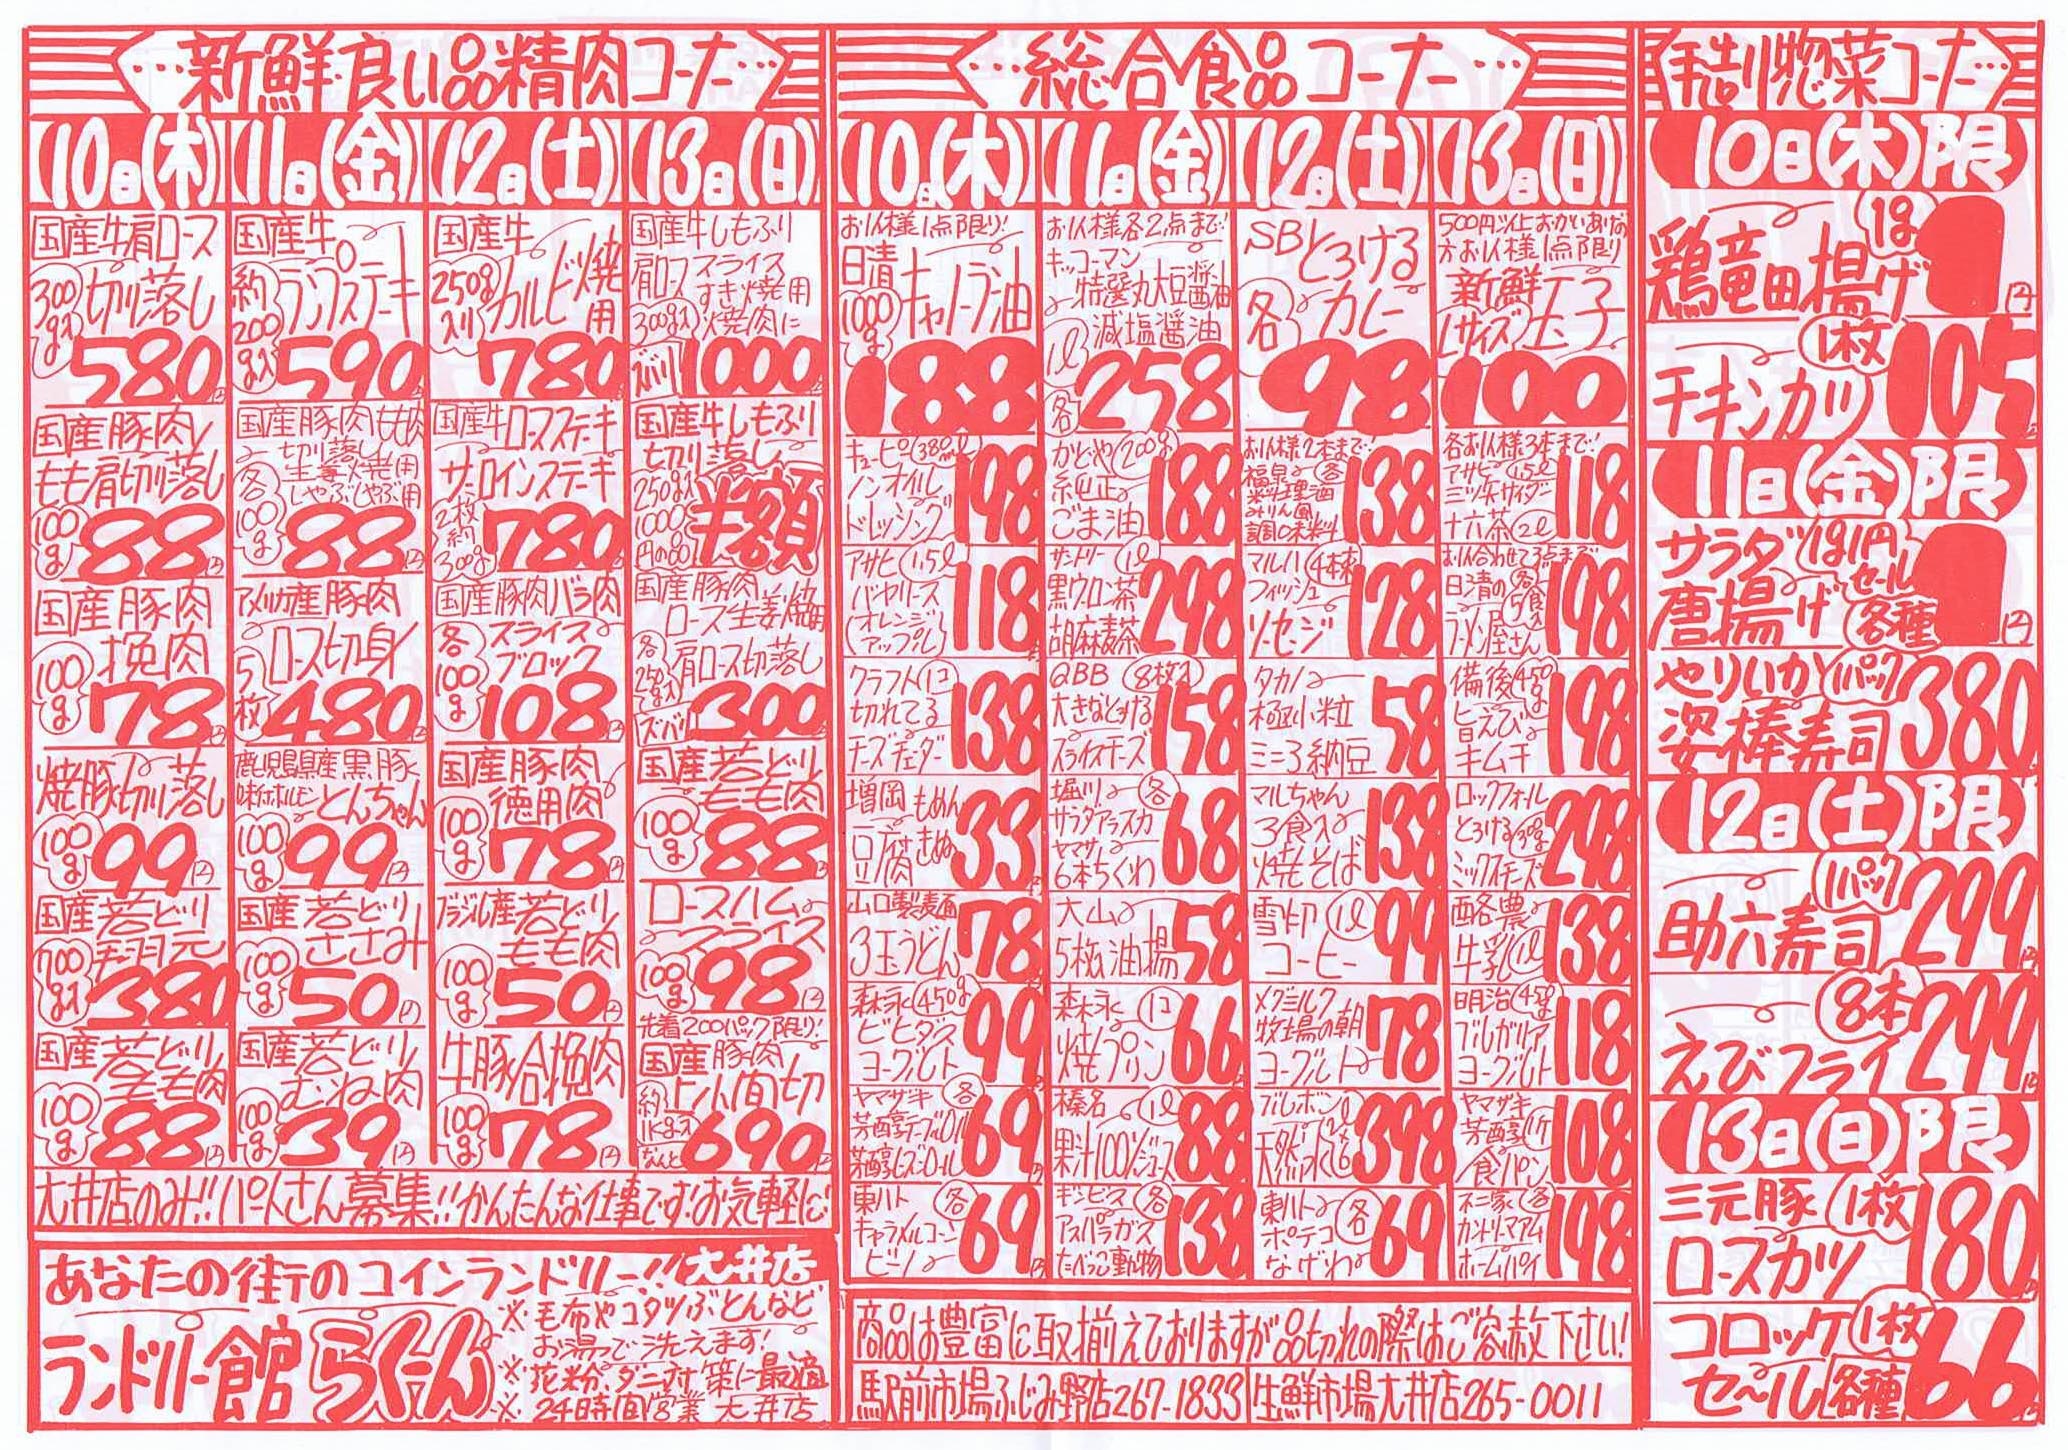 …新鮮良い品精肉コーナー…
10日(木)
11日(金)
12日(土)
13日(日)
国産牛肩ロース
切り落し
300g入
580円
国産牛
ランプステーキ
約200g入
590円
国産牛
カルビ焼用
250g入り
780円
国産牛しもふり
肩ロース スライス
すき焼用
焼肉に
300g入
ズバリ1000円
国産豚肉
もも肩切り落し
100g
88円
国産豚肉もも肉
切り落し
生姜焼用
しゃぶしゃぶ用
各100g
88円
国産牛ロースステーキ
サーロインステーキ
2枚約300g
780円
国産牛しもふり
切り落し
250g入
1000円の品
半額
国産豚肉
挽肉
100g
78円
アメリカ産豚肉
ロース切身
5枚
480円
国産豚肉バラ肉
スライス
ブロック
各100g
108円
国産豚肉
ロース生姜焼用
肩ロース切落し
各250g入
ズバリ300円
焼豚切り落し
100g
99円
鹿児島県産黒豚
味付ホルモン とんちゃん
100g
99円
国産豚肉
徳用肉
100g
78円
国産若どり
もも肉
100g
88円
国産若どり
手羽元
700g入
380円
国産若どり
ささみ
100g
50円
ブラジル産若どり
もも肉
100g
50円
ロースハム
スライス
100g
98円
国産若どり
もも肉
100g
88円
国産若どり
むね肉
100g
39円
牛豚合挽肉
100g
78円
先着200パック限り!
国産豚肉
ヒレ小間切
約1kg入
なんと690円
大井店のみ!!パートさん募集!!かんたんな仕事です!お気軽に
あなたの街のコインランドリー!!大井店
ランドリー館らくーん
※毛布やコタツぶとんなど
お湯で洗えます!
※花粉、ダニ対策に最適
※24時間営業 大井店
…総合食品コーナー…
10日(木)
11日(金)
12日(土)
13日(日)
お1人様1点限り!
日清
キャノーラ油
1000g
188
お1人様各2点まで!
キッコーマン
特選丸大豆醤油
減塩醤油
1ℓ
各258
SBとろける
カレー
各98
500円以上おかいあげの
方お1人様1点限り
新鮮玉子
Lサイズ
100
キューピ 380ml
ノンオイル
ドレッシング
198
かどや 200g
純正
ごま油
188
お1人様2本まで!
福泉 各
料理酒
みりん風
調味料
138
各お1人様3本まで!
アサヒ 1.5ℓ
三ツ矢サイダー
十六茶 2ℓ
118
アサヒ 1.5ℓ
バヤリース
(オレンジ
アップル)
118円
サントリー 1ℓ
黒ウーロン茶
胡麻麦茶
298
マルハ 4本束
フィッシュ
ソーセージ
128
お1人合わせて3点まで
日清の 各5食入
ラーメン屋さん
198
クラフト 1コ
切れてる
チーズチェダー
138
QBB 8枚入
大きなとろける
スライスチーズ
158
タカノ
極小粒
ミニ3納豆
58
備後 450g
旨えび
キムチ
198
増岡 もめん
豆腐 きぬ
33円
堀川 各
サラダアラスカ
ヤマサ
6本ちくわ
68
マルちゃん
3食入
焼そば
138
ロックフォール
とろける
ミックスチーズ
298
山口製麺
3玉うどん
78円
大山
5枚油揚
58
雪印 1ℓ
コーヒー
99
酪農
牛乳 1ℓ
138
森永 450g
ビヒダス
ヨーグルト
99
森永 1コ
焼プリン
66円
メグミルク
牧場の朝
ヨーグルト
78
明治 450g
ブルガリア
ヨーグルト
118
ヤマザキ 各
芳醇テーブルロール
芳醇レーズンロール
69円
榛名 1ℓ
果汁100%ジュース
88
ブルボン
天然水 2ℓ×6
398
ヤマザキ
芳醇 1斤
食パン
108
東ハト 各
キャラメルコーン
ビーノ
69円
ギンビス 各
アスパラガス
たべっ子動物
138
東ハト
ポテコ 各
なげわ
69
不二家 各
カントリーマアム
ホームパイ
198
商品は豊富に取揃えておりますが品切れの際はご容赦下さい!
駅前市場ふじみ野店267-1833
生鮮市場大井店265-0011
手造り惣菜コーナー…
10日(木)限
1g
鶏竜田揚げ
円
1枚
チキンカツ
105円
11日(金)限
サラダ
唐揚げ
1g1円
セール
各種
円
やりいか 1パック
姿棒寿司
380円
12日(土)限
1パック
助六寿司
299円
8本
えびフライ
299円
13日(日)限
三元豚 1枚
ロースカツ
180円
コロッケ 1枚
セール 各種
66円